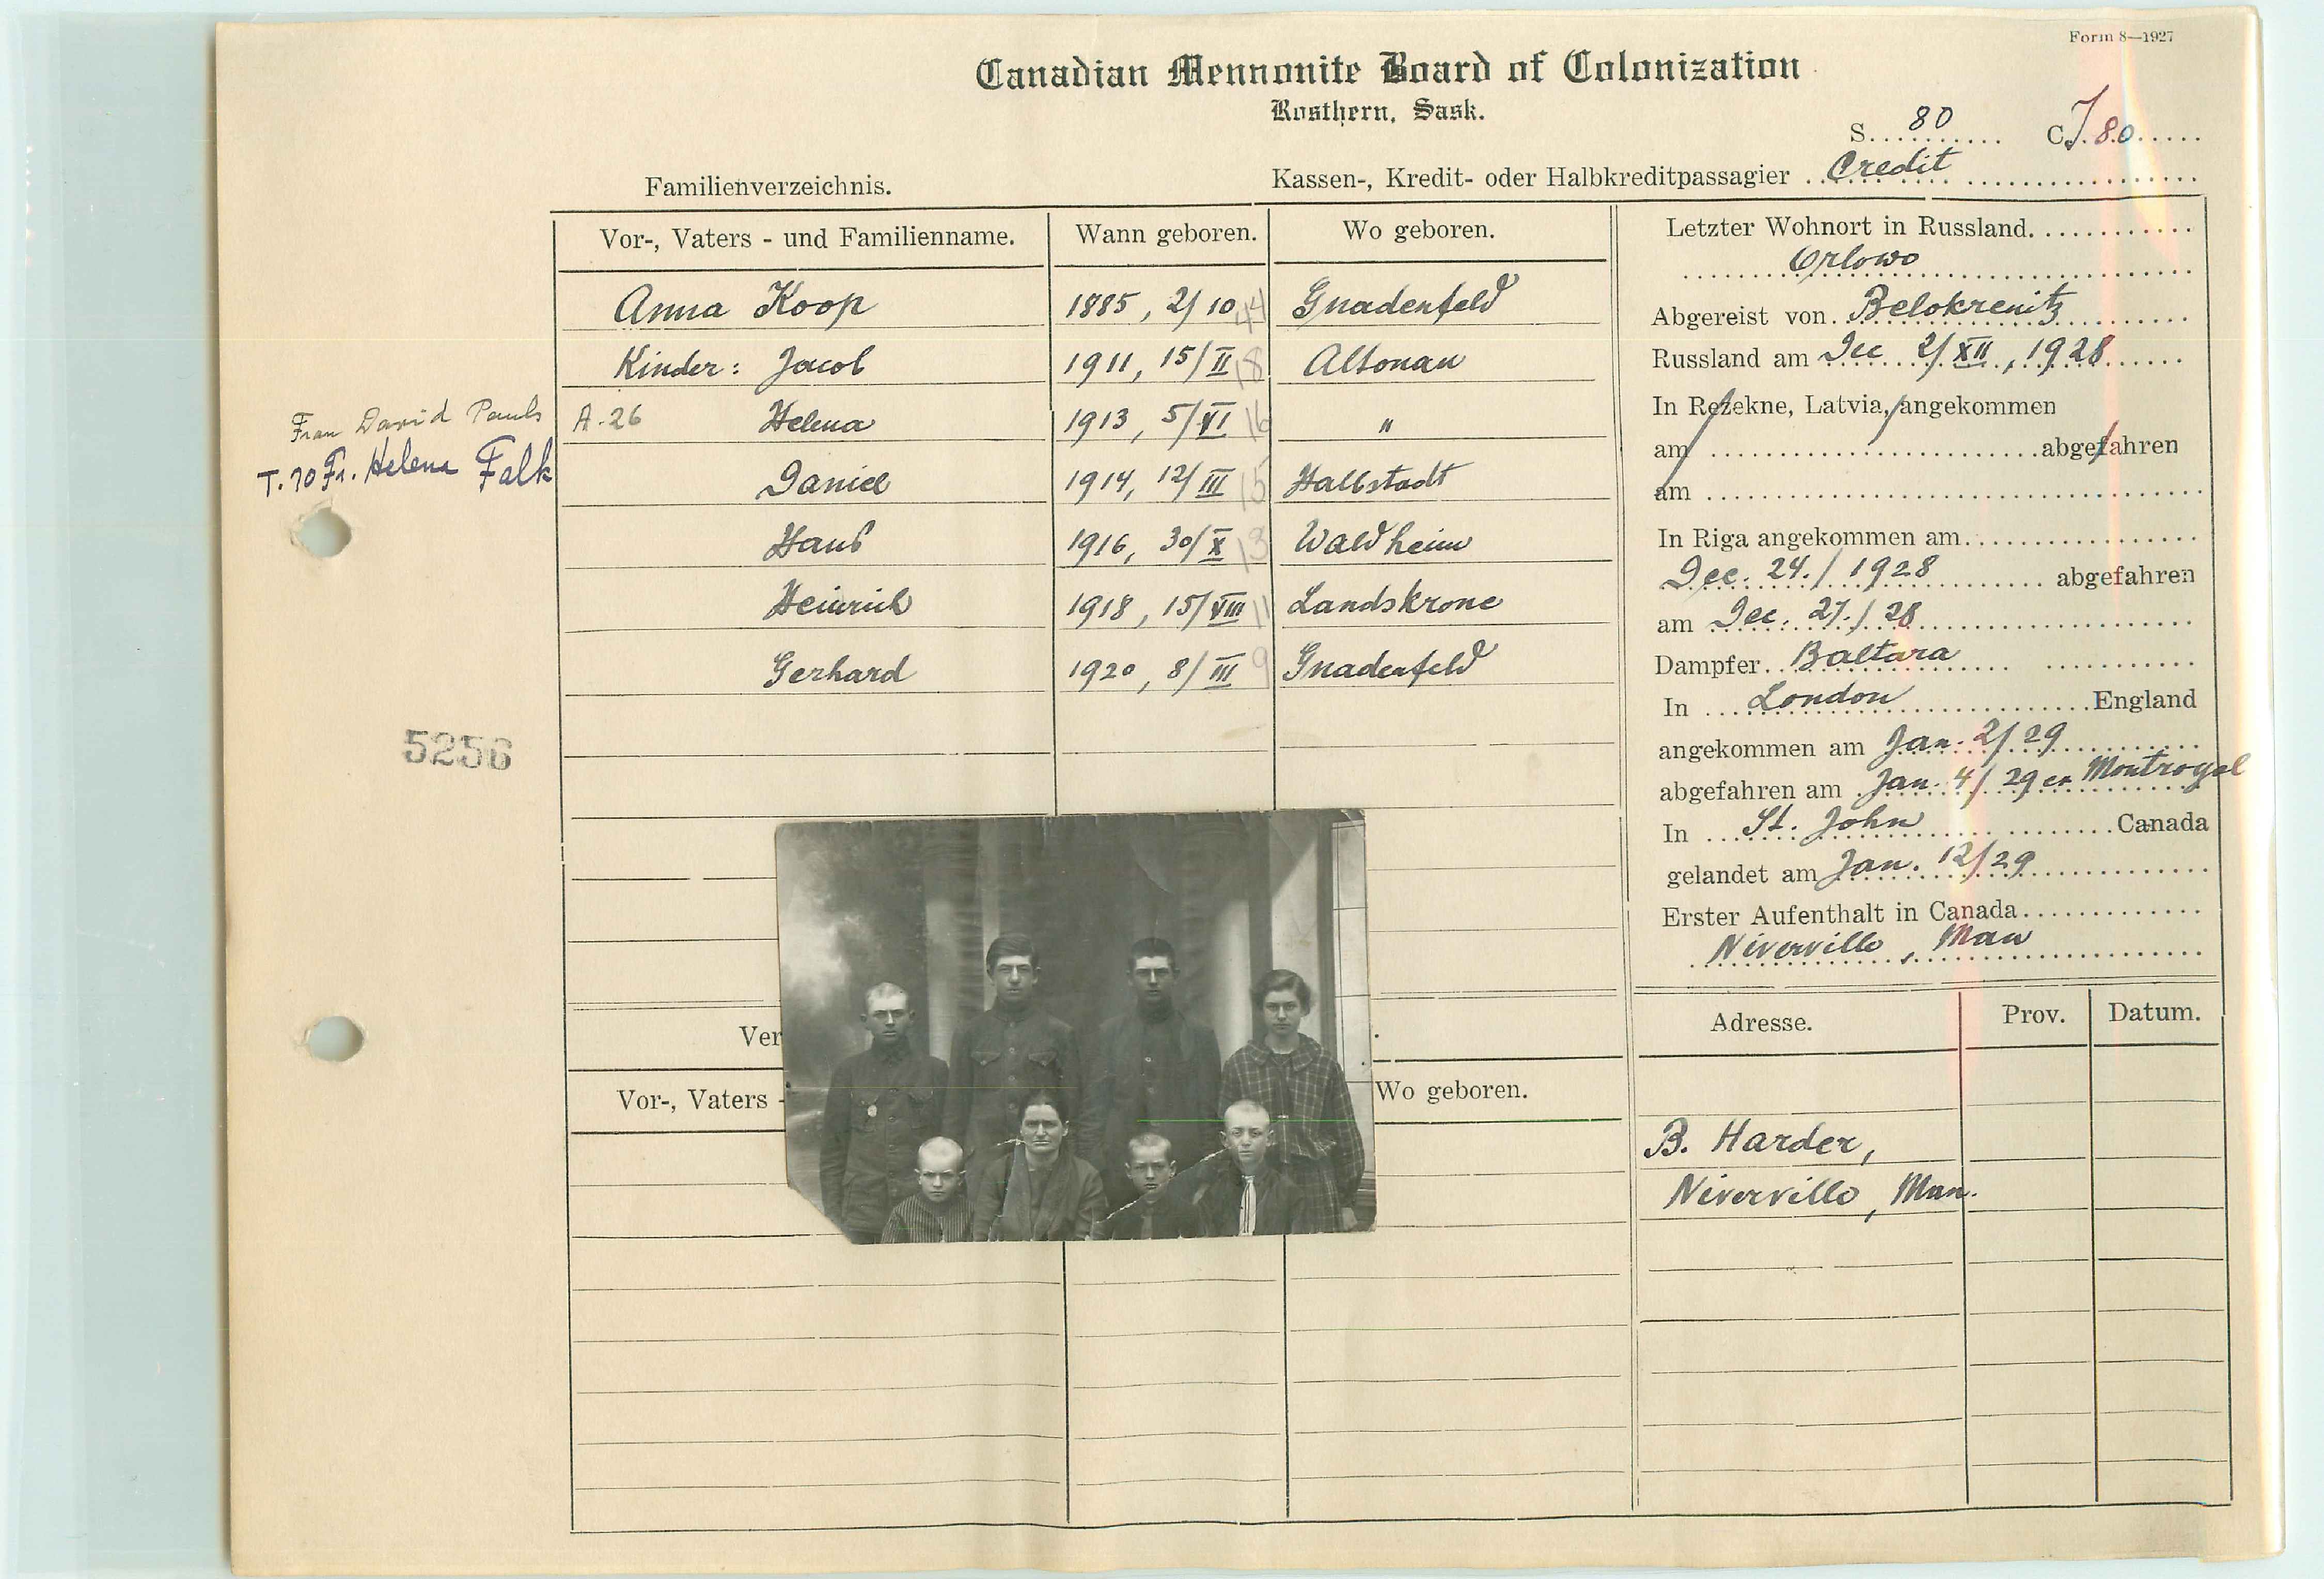 Form 8—1927
Canadian Mennonite Board of Colonization
Rosthern, Sask.
S. 80 C J. 80
Familienverzeichnis.
Kassen-, Kredit- oder Halbkreditpassagier Credit
Vor-, Vaters - und Familienname. Wann geboren. Wo geboren.
Anna Koop 1885, 2/10 44 Gnadenfeld
Kinder: Jacob 1911, 15/II 18 Altonau
Frau David Pauls A-26 Helena 1913, 5/VI 16 "
T.70 Fr. Helena Falk
Daniel 1914, 12/III 15 Halbstadt
Hans 1916, 30/X 13 Waldheim
Heinrich 1918, 15/VIII 11 Landskrone
Gerhard 1920, 8/III 9 Gnadenfeld
5256
Ver
Vor-, Vaters - Wo geboren.
Letzter Wohnort in Russland
Orlowo
Abgereist von Belokrenitz
Russland am Dec 2/XII, 1928
In Rezekne, Latvia, angekommen
am abgefahren
am
In Riga angekommen am
Dec. 24./1928 abgefahren
am Dec. 27./28
Dampfer Baltara
In London England
angekommen am Jan. 2/29
abgefahren am Jan. 4/29 Montroyal
In St. John Canada
gelandet am Jan. 12/29
Erster Aufenthalt in Canada
Niverville, Man
Adresse. Prov. Datum.
B. Harder,
Niverville, Man.